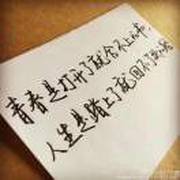 青春是打开了就合不上的书，
人生是踏上了就回不了